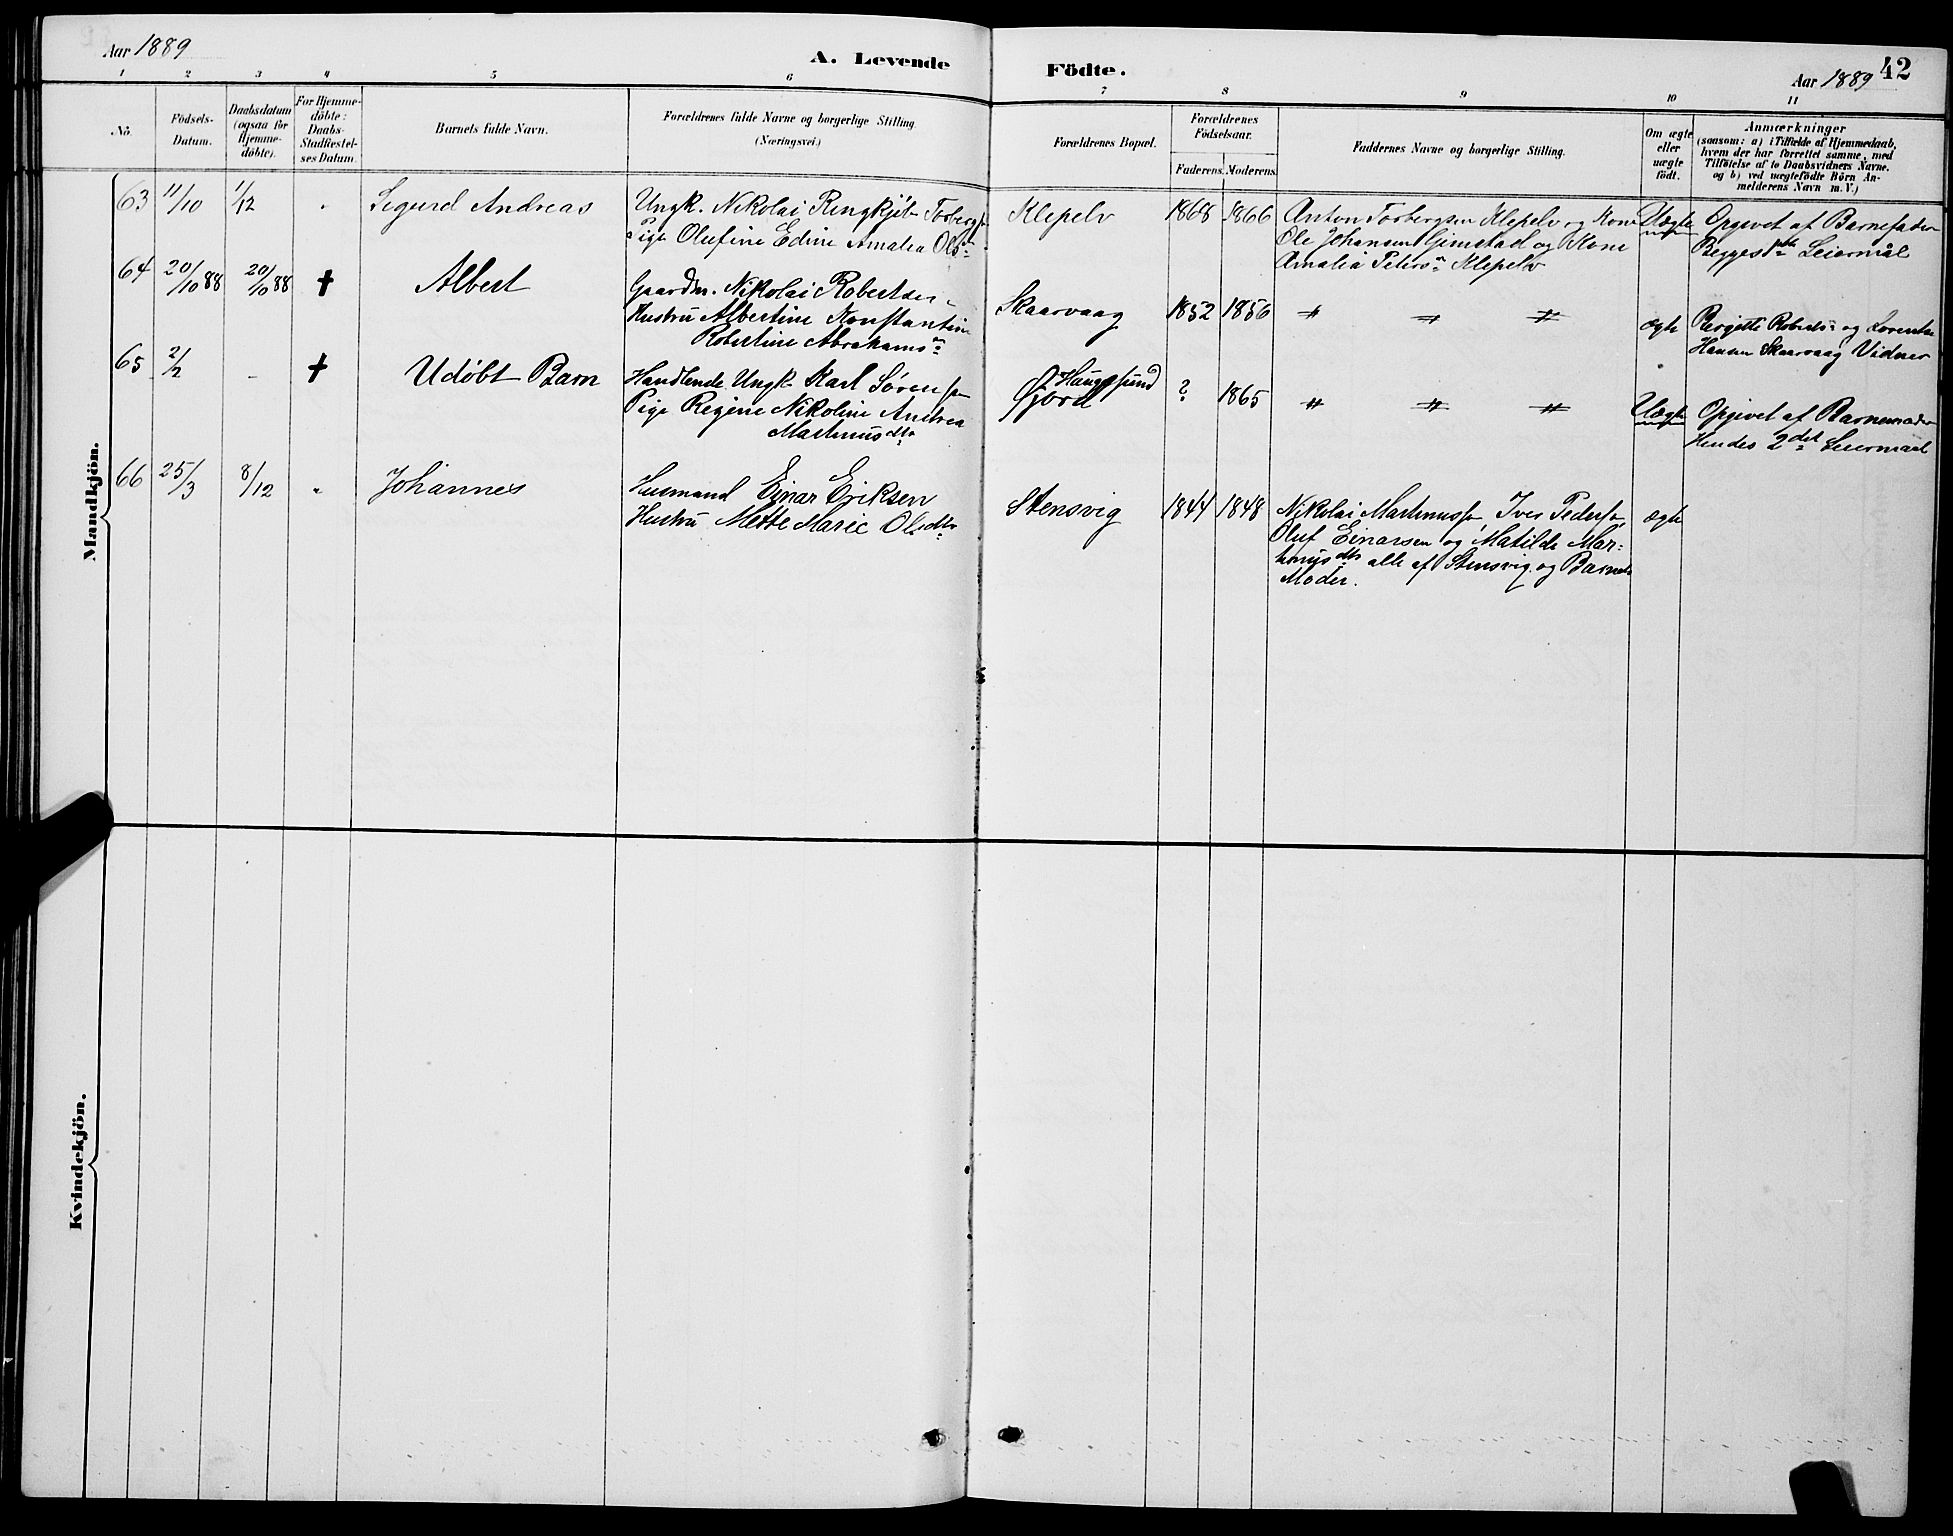 Aar 1889
A. Levende Födte.
Aar 1889 42
1 2 3 4 5 6 7 8 9 10 11
No.
Födsels-
Datum.
Daabsdatum
(ogsaa for
Hjemme-
döbte).
For Hjemme-
döbte:
Daabs-
Stadfæstel-
ses Datum.
Barnets fulde Navn.
Forældrenes fulde Navne og borgerlige Stilling.
(Næringsvei.)
Forældrenes Bopæl.
Forældrenes
Födselsaar.
Faderens. Moderens.
Faddernes Navne og borgerlige Stilling.
Om ægte
eller
uægte
födt.
Anmærkninger
(saasom: a) i Tilfælde af Hjemmedaab,
hvem der har forrettet samme, med
Tilföielse af to Daabsvidners Navne.
og b) ved uægtefödte Börn An-
melderens Navn m. V.)
Mandkjön.
63 11/10 1/12 " Sigurd Andreas
Ungk. Nikolai Ringkjöb Torbergs
Pige Olufine Edine Amalia Ols
Klepelv 1868 1866
Anton Torbergsen Klepelv og Kone
Ole Johansen Gimstad og Kone
Amalia Peters Klepelv
Uægte
Opgivet af Barnefader
Begges 1ste Leiermål
64 20/10 88 20/10 88 † Albert
Gaardm. Nikolai Robertsen
Hustru Albertine Konstantine
Robertine Abrahams
Skaarvaag 1852 1856 " " "
ægte
Bergitte Roberts og Lorentse
Hansen Skaarvaag Vidner
65 2/2 - † Udøbt Barn
Handlende Ungk. Karl Sørens
Pige Regine Nikoline Andrea
Martinusdtr
Haugesund
Fjord ? 1865 " " "
Uægte
Opgivet af Barnemoder
Hendes 2det Leiermaal
66 25/3 8/12 " Johannes
Husmand Einar Eriksen
Hustru Mette Marie Olsdtr
Stensvig 1844 1848
Nikolai Martinuss Iver Peders
Oluf Einarsen og Matilde Mar-
tinusdtr alle af Stensvig og Barnets
Moder.
ægte
Kvindekjön.